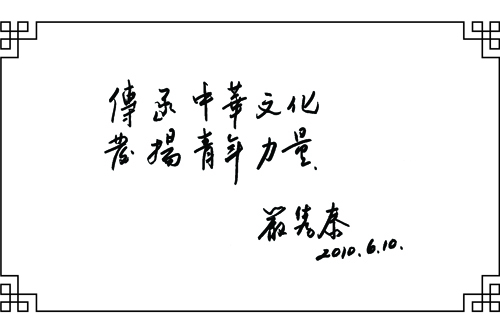 傳承中華文化
發揚青年力量.
嚴雋泰
2010.6.10.